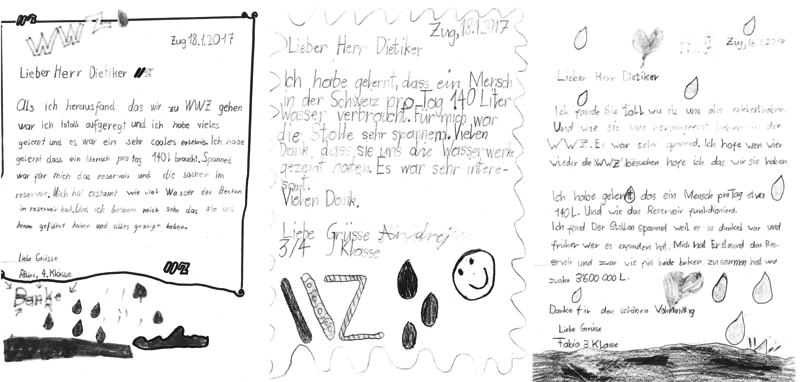 WWZ
Zug 18.1.2017
Lieber Herr Dietiker
Als ich herausfand das wir zu WWZ gehen
war ich totall aufgeregt und ich habe vieles
gelernt und es war ein sehr cooles erlebnis. Ich habe
gelernt dass ein Mensch pro Tag 140l braucht. Spannend
war für mich das reservoir und die sachen im
reservoir. Mich hat erstaunt wie viel Wasser der Becken
im reservoir hat. Und ich bedanke mich sehr das sie uns
herum geführt haben und alles gezeigt haben.
Liebe Grüsse
4. Klasse
WWZ
Danke
Zug, 18.1.2017
Lieber Herr Dietiker
Ich habe gelernt, dass ein Mensch
in der Schweiz pro Tag 140 Liter
Wasser verbraucht. Für mich war
die Stolle sehr spannend. Vielen
Dank, dass sie uns die Wasserwerke
gezeint haben. Es war sehr intere-
sant.
Vielen Dank.
Liebe Grüsse Andrej
3/4 Klasse
WWZ
Zug, 18.1.2017
Lieber Herr Dietiker
Ich fande sie toll wie sie uns alles erklert haben.
Und wie sie uns haben in der
WWZ. Es war sehr spanend. Ich hofe wen wier
wieder die WWZ besuchen hofe ich das wir sie haben.
Ich habe gelernt das ein Mensch pro Tag etwa
140 L. Und wie das Reservoir funktioniert.
Ich fand Der Stollen spanend weil er so dunkel war und
früher wer es erfunden hat. Mich hat Erstaund das Res-
ervoir und zwar wie fiel bede beken zusammen hat und
zwahr 3'600 000 L.
Danke für den schönen Vormittag
Liebe Grüse
Fabio 3. Klasse